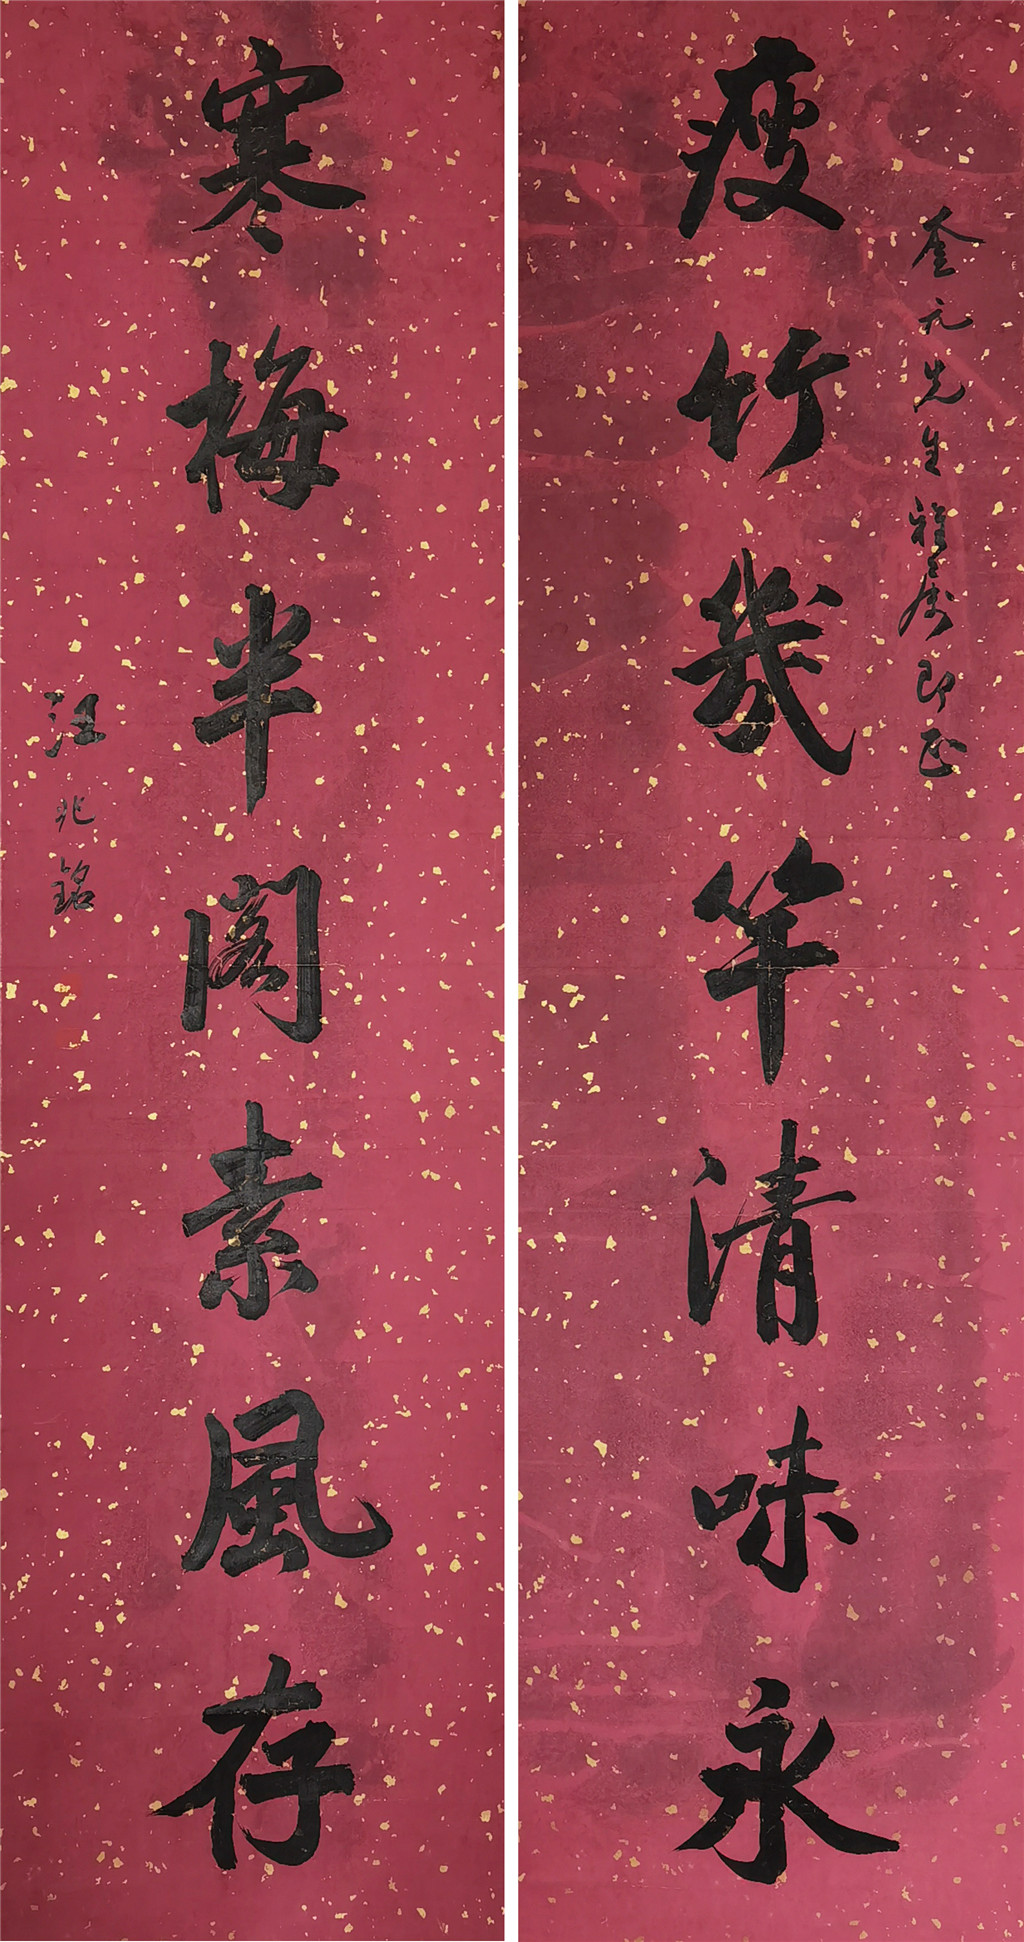 奎元先生雅属即正
瘦竹幾竿清味永
寒梅半閣素風存
汪兆銘